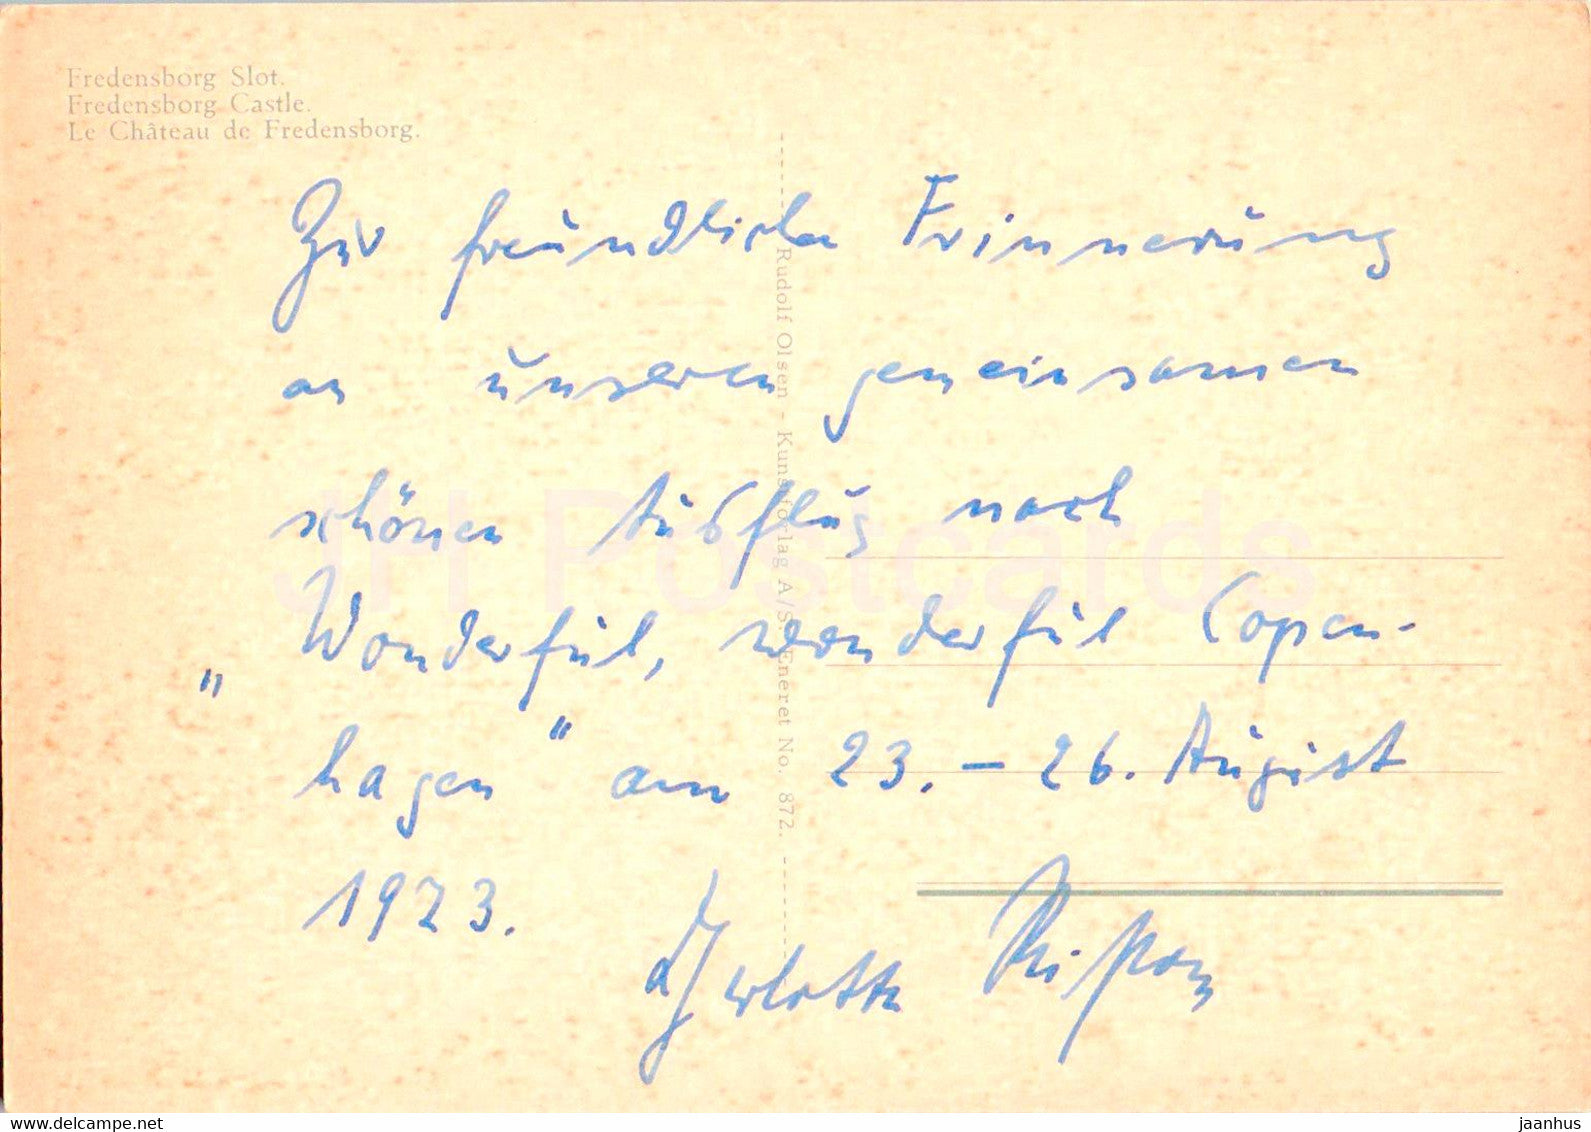 Fredensborg Slot.
Fredensborg Castle.
Le Château de Fredensborg.
Zur freundlichen Erinnerung
an unseren gemeinsamen
schönen Ausflug nach
„Wonderful, wonderful Copen-
hagen" am 23. – 26. August
1973.
Rudolf Olsen - Kunstforlag A/S. Eneret No. 872.
JH Postcards
www.delcampe.net
jaanhus